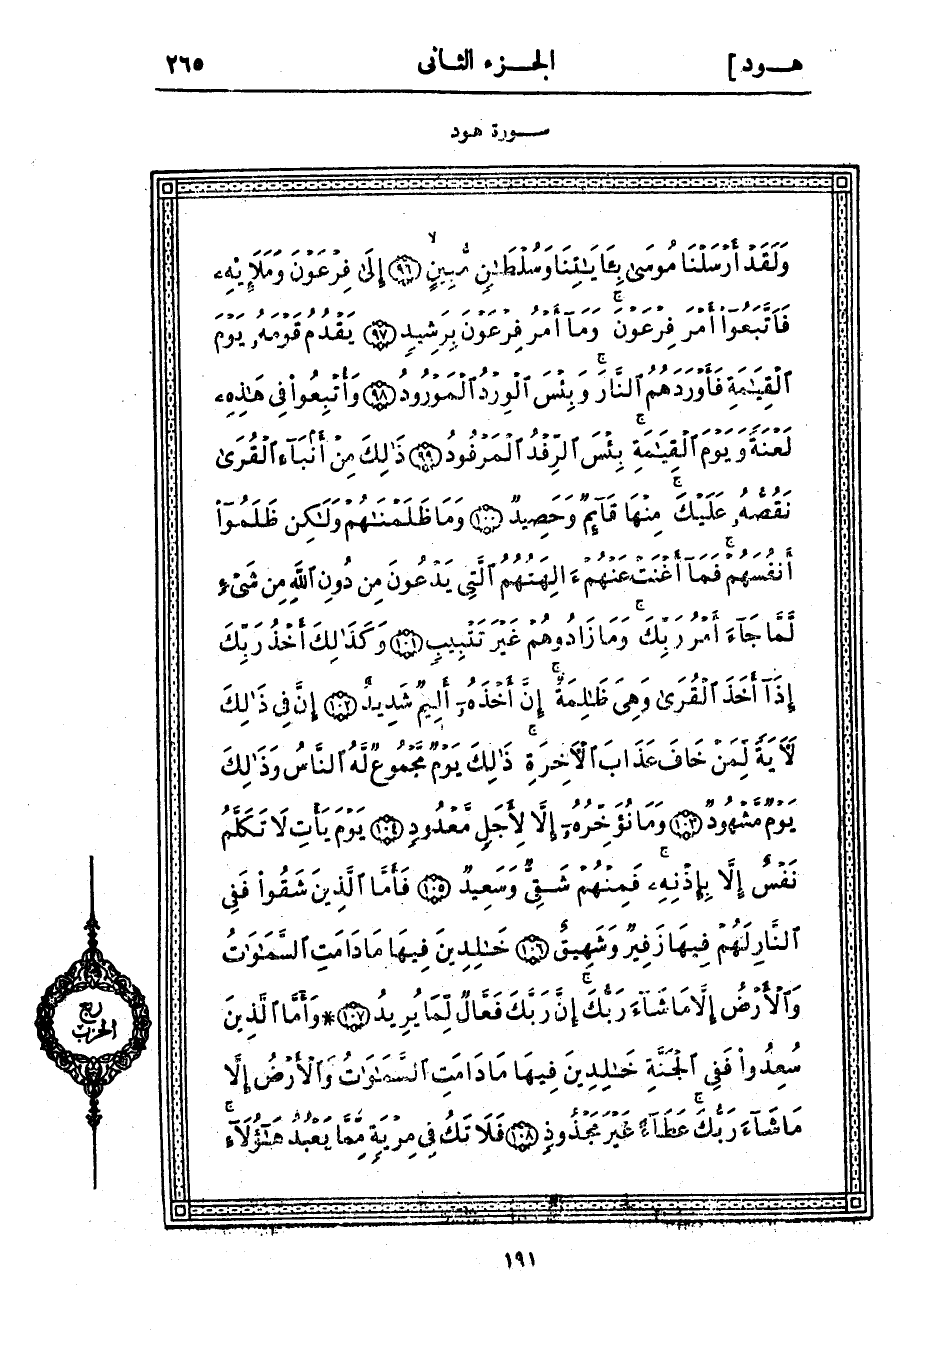 هود] الجزء الثانى ٢٦٥
سورة هود
وَلَقَدْ أَرْسَلْنَا مُوسَىٰ بِـَٔايَـٰتِنَا وَسُلْطَـٰنٍ مُّبِينٍ ۙ ﴿٩٦﴾ إِلَىٰ فِرْعَوْنَ وَمَلَإِي۟هِۦ
فَٱتَّبَعُوٓا۟ أَمْرَ فِرْعَوْنَ ۚ وَمَآ أَمْرُ فِرْعَوْنَ بِرَشِيدٍ ﴿٩٧﴾ يَقْدُمُ قَوْمَهُۥ يَوْمَ
ٱلْقِيَـٰمَةِ فَأَوْرَدَهُمُ ٱلنَّارَ ۚ وَبِئْسَ ٱلْوِرْدُ ٱلْمَوْرُودُ ﴿٩٨﴾ وَأُتْبِعُوا۟ فِى هَـٰذِهِۦ
لَعْنَةً وَيَوْمَ ٱلْقِيَـٰمَةِ ۚ بِئْسَ ٱلرِّفْدُ ٱلْمَرْفُودُ ﴿٩٩﴾ ذَٰلِكَ مِنْ أَنۢبَآءِ ٱلْقُرَىٰ
نَقُصُّهُۥ عَلَيْكَ ۚ مِنْهَا قَآئِمٌ وَحَصِيدٌ ﴿١٠٠﴾ وَمَا ظَلَمْنَـٰهُمْ وَلَـٰكِن ظَلَمُوٓا۟
أَنفُسَهُمْ ۚ فَمَآ أَغْنَتْ عَنْهُمْ ءَالِهَتُهُمُ ٱلَّتِى يَدْعُونَ مِن دُونِ ٱللَّهِ مِن شَىْءٍ
لَّمَّا جَآءَ أَمْرُ رَبِّكَ ۚ وَمَا زَادُوهُمْ غَيْرَ تَتْبِيبٍ ﴿١٠١﴾ وَكَذَٰلِكَ أَخْذُ رَبِّكَ
إِذَآ أَخَذَ ٱلْقُرَىٰ وَهِىَ ظَـٰلِمَةٌ ۚ إِنَّ أَخْذَهُۥٓ أَلِيمٌ شَدِيدٌ ﴿١٠٢﴾ إِنَّ فِى ذَٰلِكَ
لَـَٔايَةً لِّمَنْ خَافَ عَذَابَ ٱلْـَٔاخِرَةِ ۚ ذَٰلِكَ يَوْمٌ مَّجْمُوعٌ لَّهُ ٱلنَّاسُ وَذَٰلِكَ
يَوْمٌ مَّشْهُودٌ ﴿١٠٣﴾ وَمَا نُؤَخِّرُهُۥٓ إِلَّا لِأَجَلٍ مَّعْدُودٍ ﴿١٠٤﴾ يَوْمَ يَأْتِ لَا تَكَلَّمُ
نَفْسٌ إِلَّا بِإِذْنِهِۦ ۚ فَمِنْهُمْ شَقِىٌّ وَسَعِيدٌ ﴿١٠٥﴾ فَأَمَّا ٱلَّذِينَ شَقُوا۟ فَفِى
ٱلنَّارِ لَهُمْ فِيهَا زَفِيرٌ وَشَهِيقٌ ﴿١٠٦﴾ خَـٰلِدِينَ فِيهَا مَا دَامَتِ ٱلسَّمَـٰوَٰتُ
وَٱلْأَرْضُ إِلَّا مَا شَآءَ رَبُّكَ ۚ إِنَّ رَبَّكَ فَعَّالٌ لِّمَا يُرِيدُ ﴿١٠٧﴾ * وَأَمَّا ٱلَّذِينَ
سُعِدُوا۟ فَفِى ٱلْجَنَّةِ خَـٰلِدِينَ فِيهَا مَا دَامَتِ ٱلسَّمَـٰوَٰتُ وَٱلْأَرْضُ إِلَّا
مَا شَآءَ رَبُّكَ ۚ عَطَآءً غَيْرَ مَجْذُوذٍ ﴿١٠٨﴾ فَلَا تَكُ فِى مِرْيَةٍ مِّمَّا يَعْبُدُ هَـٰٓؤُلَآءِ ۚ
ربع
الحزب
١٩١